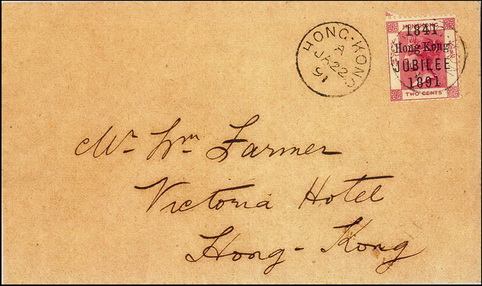 HONG-KONG
A
JA 22
91
1841
Hong Kong
JUBILEE
1891
TWO CENTS
Mr. Wm Farmer
Victoria Hotel
Hong-Kong